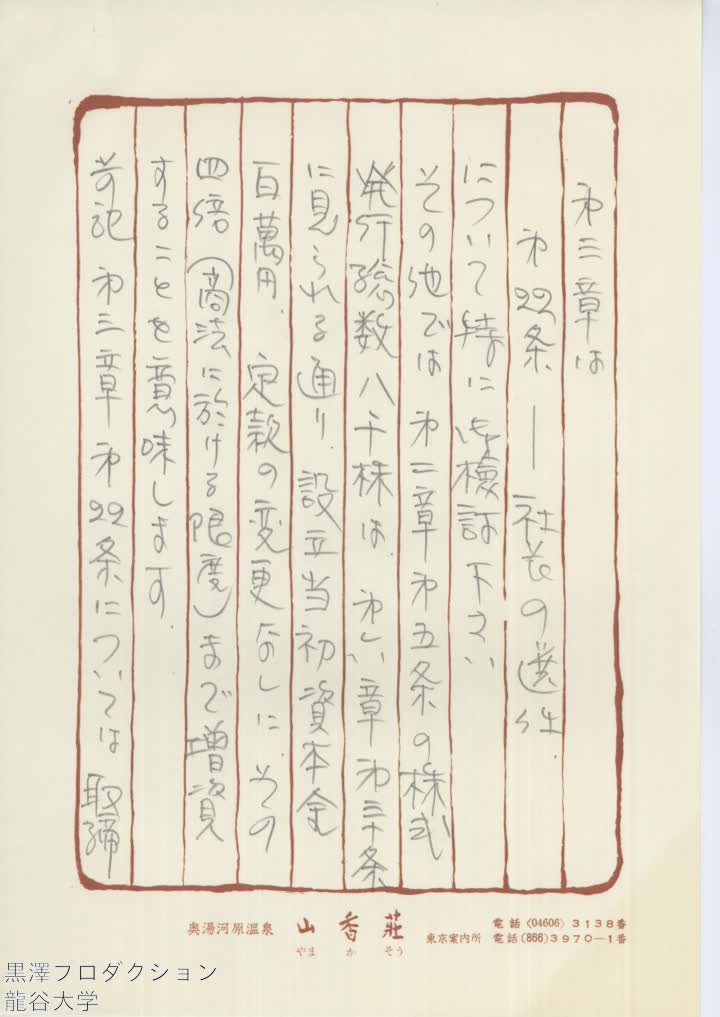 㐧三章は
㐧22条 ― 社長の選任.
について特に御検討下さい
その他では㐧二章㐧五条の株式
発行総数八千株は.㐧八章㐧三十条
に見られる通り.設立当初資本金
百萬円.定款の変更なしに.その
四倍(商法に於ける限度)まで増資
することを意味します.
前記㐧三章㐧22条については取締
奥湯河原温泉 山香荘 電話〈04606〉3138番
やまかそう 東京案内所 電話(866)3970―1番
黒澤プロダクション
龍谷大学